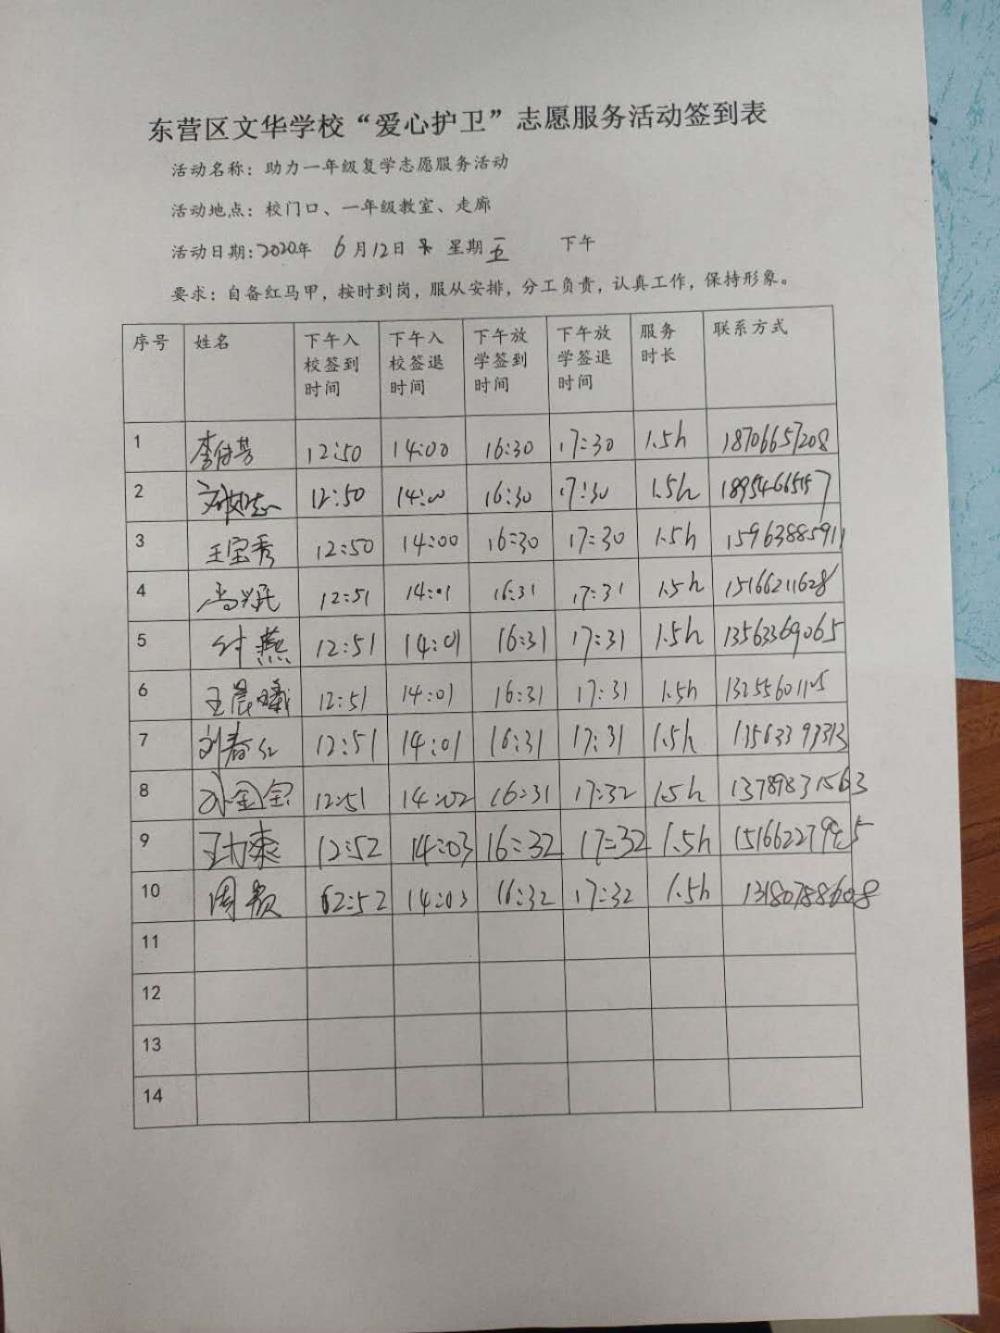 东营区文华学校“爱心护卫”志愿服务活动签到表
活动名称：助力一年级复学志愿服务活动
活动地点：校门口、一年级教室、走廊
活动日期：2020年 6月12日 星期五 下午
要求：自备红马甲，按时到岗，服从安排，分工负责，认真工作，保持形象。
序号 姓名 下午入校签到时间 下午入校签退时间 下午放学签到时间 下午放学签退时间 服务时长 联系方式
1 12:50 14:00 16:30 17:30 1.5h 18706657208
2 12:50 14:00 16:30 17:30 1.5h 18954665157
3 王宝秀 12:50 14:00 16:30 17:30 1.5h 15963885911
4 12:51 14:01 16:31 17:31 1.5h 15166211628
5 付燕 12:51 14:01 16:31 17:31 1.5h 13563369065
6 王晨曦 12:51 14:01 16:31 17:31 1.5h
7 刘春红 12:51 14:01 16:31 17:31 1.5h 13563393313
8 12:51 14:02 16:31 17:32 1.5h 13789831563
9 12:52 14:03 16:32 17:32 1.5h
10 周颖 14:03 16:32 17:32 1.5h 13180788608
11
12
13
14